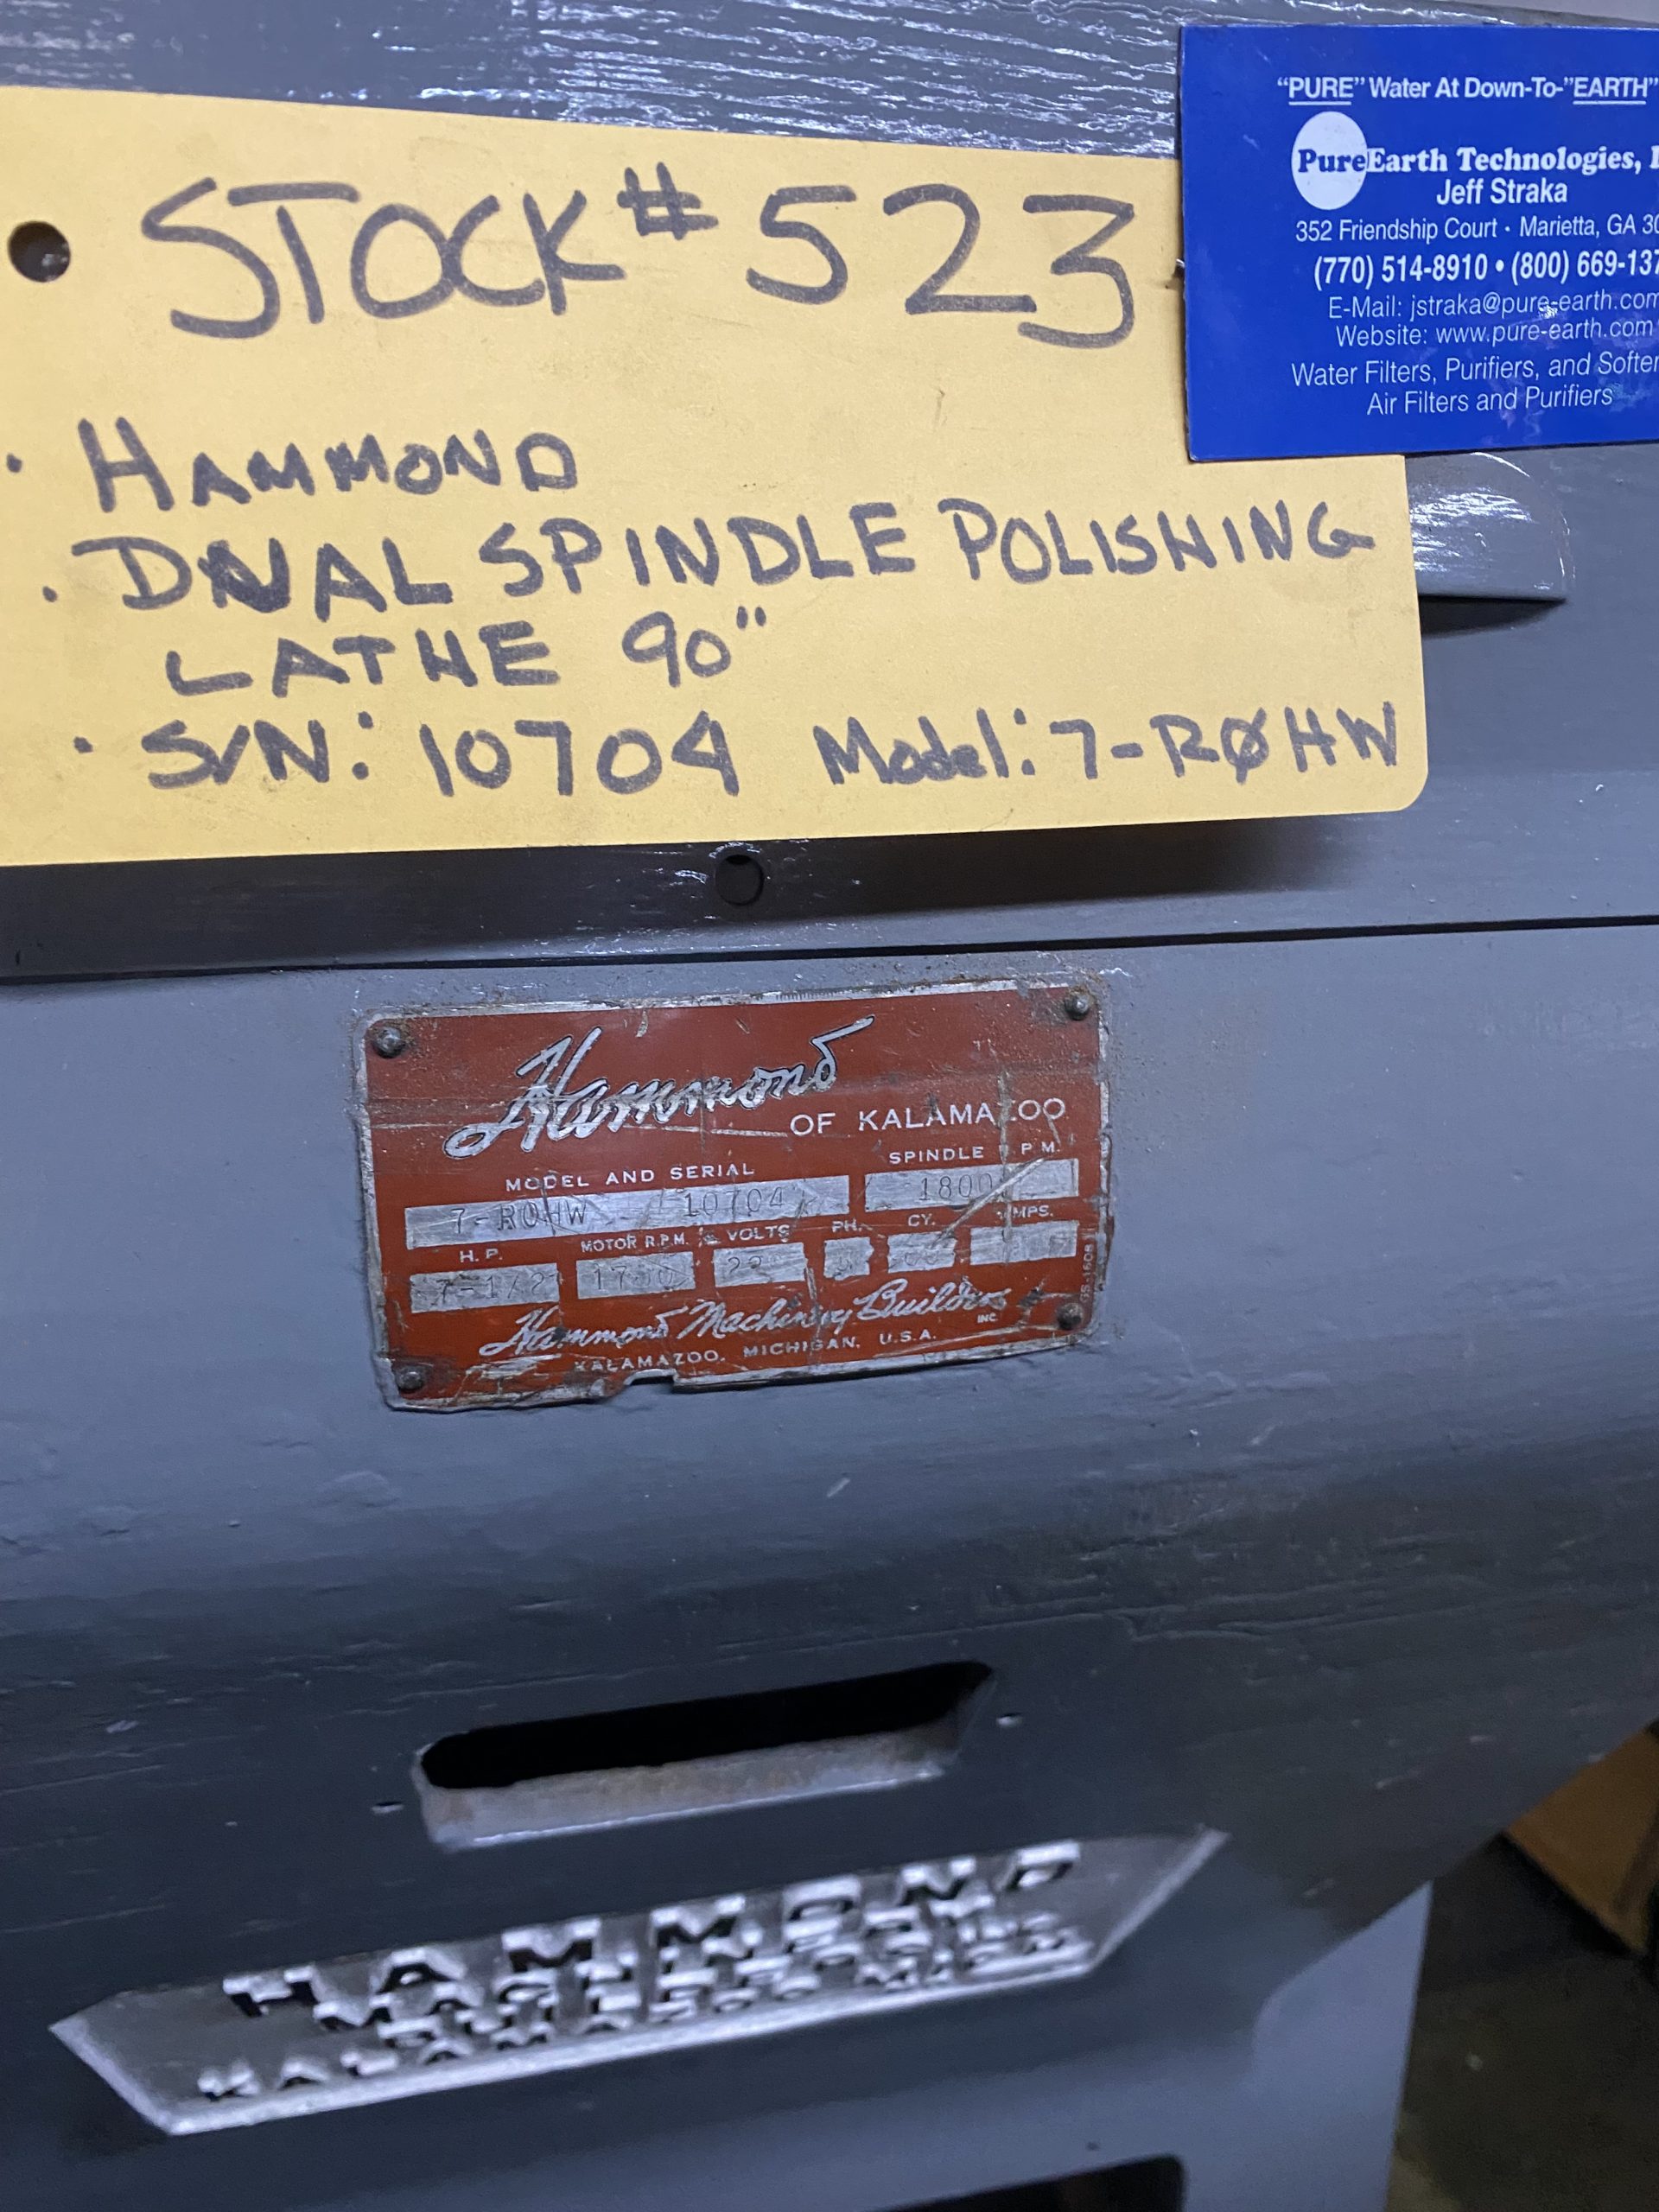 STOCK # 523
· HAMMOND
· DUAL SPINDLE POLISHING
LATHE 90"
· S/N: 10704 Model: 7-RØHW
"PURE" Water At Down-To-"EARTH"
PureEarth Technologies,
Jeff Straka
352 Friendship Court • Marietta, GA
(770) 514-8910 • (800)
E-Mail: jstraka@pure-earth.com
Website: www.pure-earth.com
Water Filters, Purifiers, and
Air Filters and Purifiers
Hammond
OF KALAMAZOO
MODEL AND SERIAL SPINDLE R.P.M.
7-ROHW 10704 1800
H.P. MOTOR R.P.M. VOLTS PH. CY. AMPS.
7-1/2
Hammond Machinery Builders INC.
KALAMAZOO, MICHIGAN, U.S.A.
HAMMOND
MACHINERY
BUILDERS
KALAMAZOO MICH